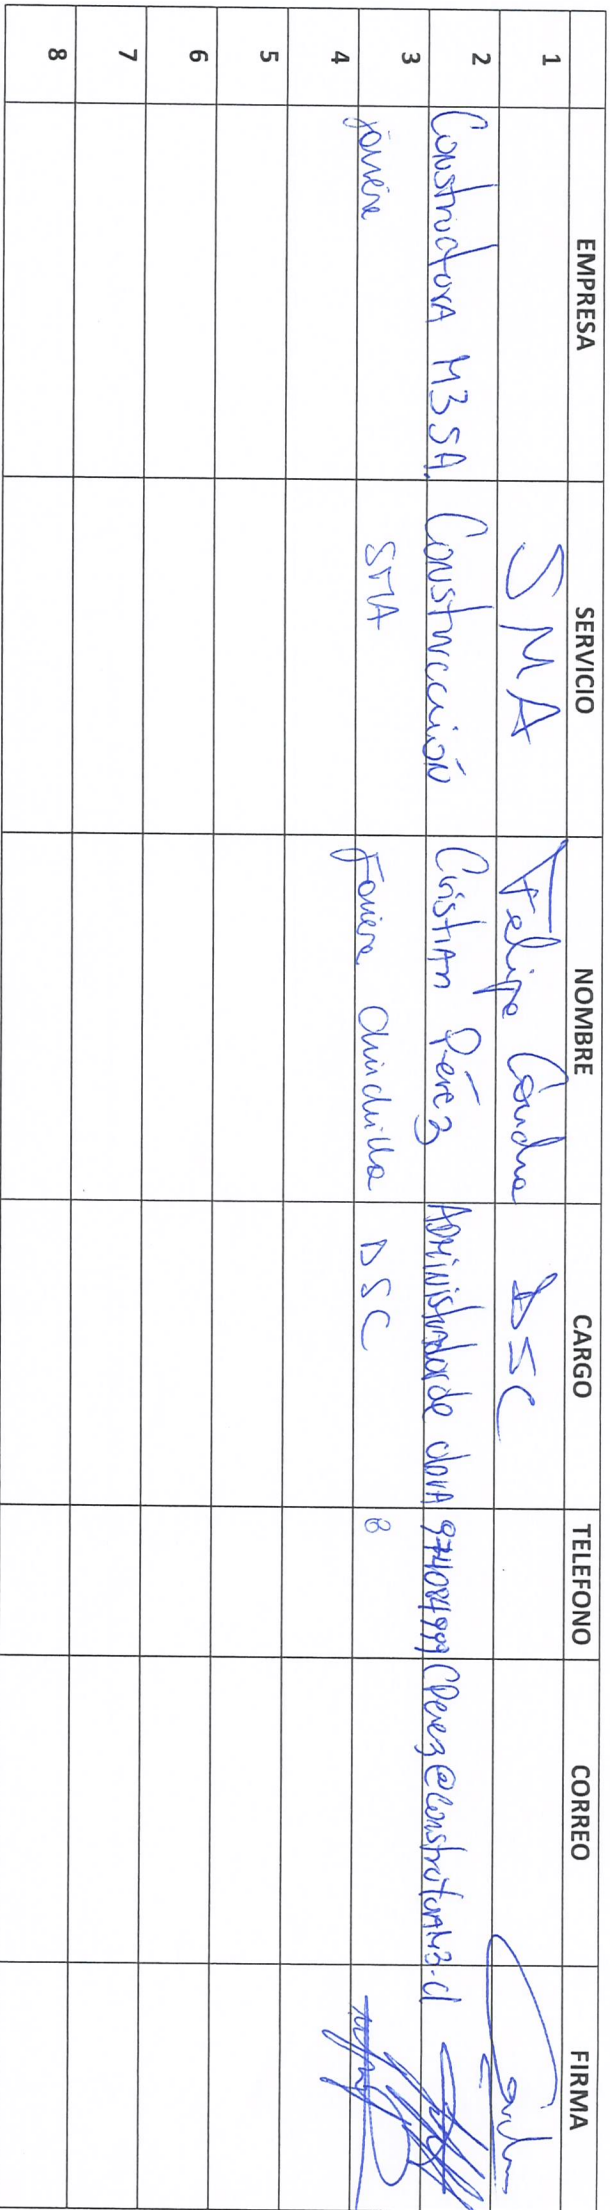 EMPRESA SERVICIO NOMBRE CARGO TELEFONO CORREO FIRMA
1 SMA Felipe DSC
2 Constructora M3SA Construcción Cristian Pérez Administrador de obra 974084999 CPerez@constructoraM3.cl
3 SMA Chinchilla DSC
4
5
6
7
8